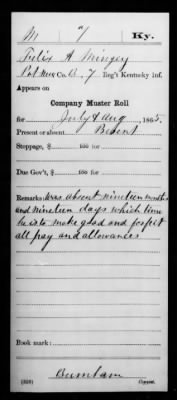 M 7 Ky.
Felix A Mingey
Co. B, 7 Reg't Kentucky inf.
Appears on
Company Muster Roll
for July & Aug, 1865.
Present or absent
Stoppage, $ 100 for
Due Gov't, $ 100 for
Remarks: Was absent nineteen months
and nineteen days which time
he is to make good and forfeit
all pay and allowances
Book mark:
Burnham
(358) Copyist.